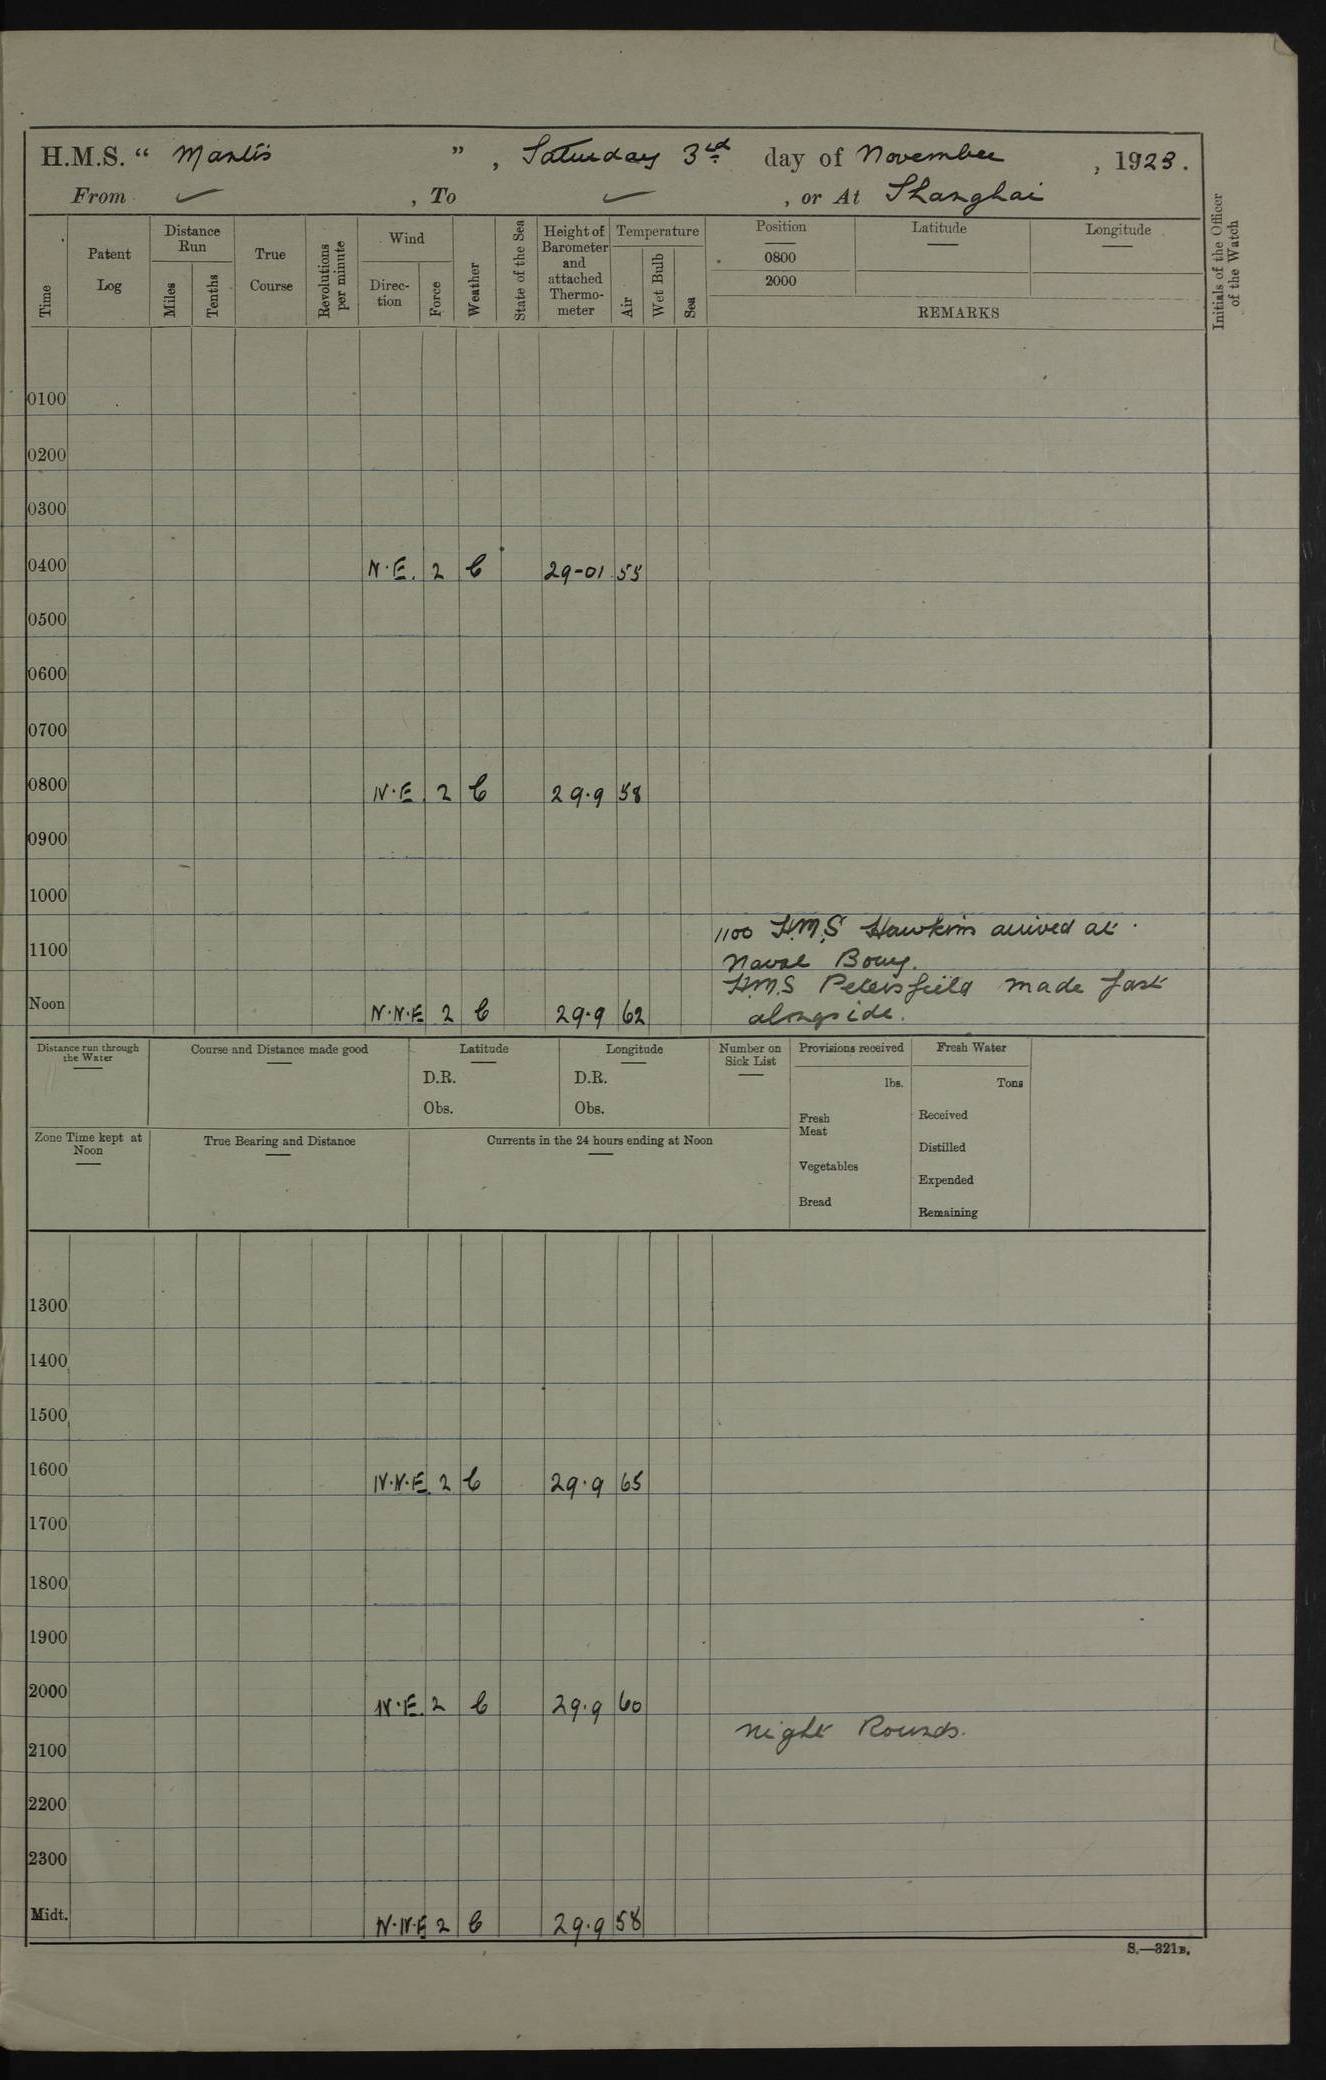 H.M.S. “ Mantis ” , Saturday 3rd day of November , 1923.
From ✓ , To ✓ , or At Shanghai
Time
Patent Log
Distance Run
Miles
Tenths
True Course
Revolutions per minute
Wind
Direction
Force
Weather
State of the Sea
Height of Barometer and attached Thermometer
Temperature
Air
Wet Bulb
Sea
Position
Latitude
Longitude
0800
2000
REMARKS
Initials of the Officer of the Watch
0100
0200
0300
0400 N.E. 2 C 29-01 55
0500
0600
0700
0800 N.E. 2 C 29.9 58
0900
1000
1100 H.M.S Hawkins arrived at
1100
Naval Bouy.
H.M.S Petersfield made fast
Noon N.N.E 2 C 29.9 62 alongside.
Distance run through the Water
Course and Distance made good
Latitude
D.R.
Obs.
Longitude
D.R.
Obs.
Number on Sick List
Provisions received
lbs.
Fresh Meat
Vegetables
Bread
Fresh Water
Tons
Received
Distilled
Expended
Remaining
Zone Time kept at Noon
True Bearing and Distance
Currents in the 24 hours ending at Noon
1300
1400
1500
1600 N.N.E. 2 C 29.9 65
1700
1800
1900
2000 N.E. 2 C 29.9 60
Night Rounds.
2100
2200
2300
Midt. N.N.E 2 C 29.9 58
S.—321B.